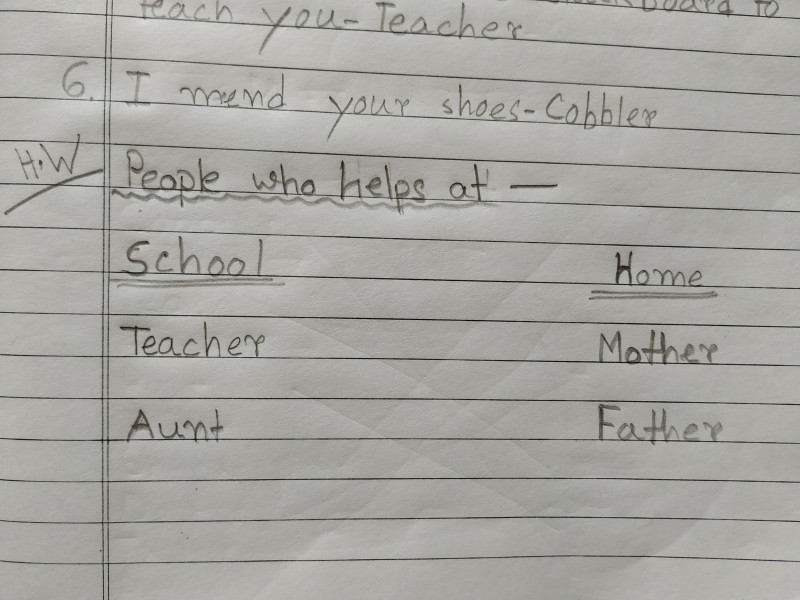 teach you-Teacher
6. I mend your shoes-Cobbler
H.W People who helps at —
School Home
Teacher Mother
Aunt Father